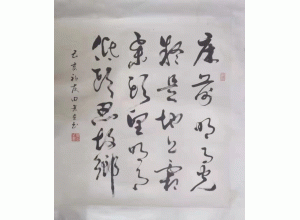 床前明月光
疑是地上霜
举頭望明月
低頭思故鄉
己亥